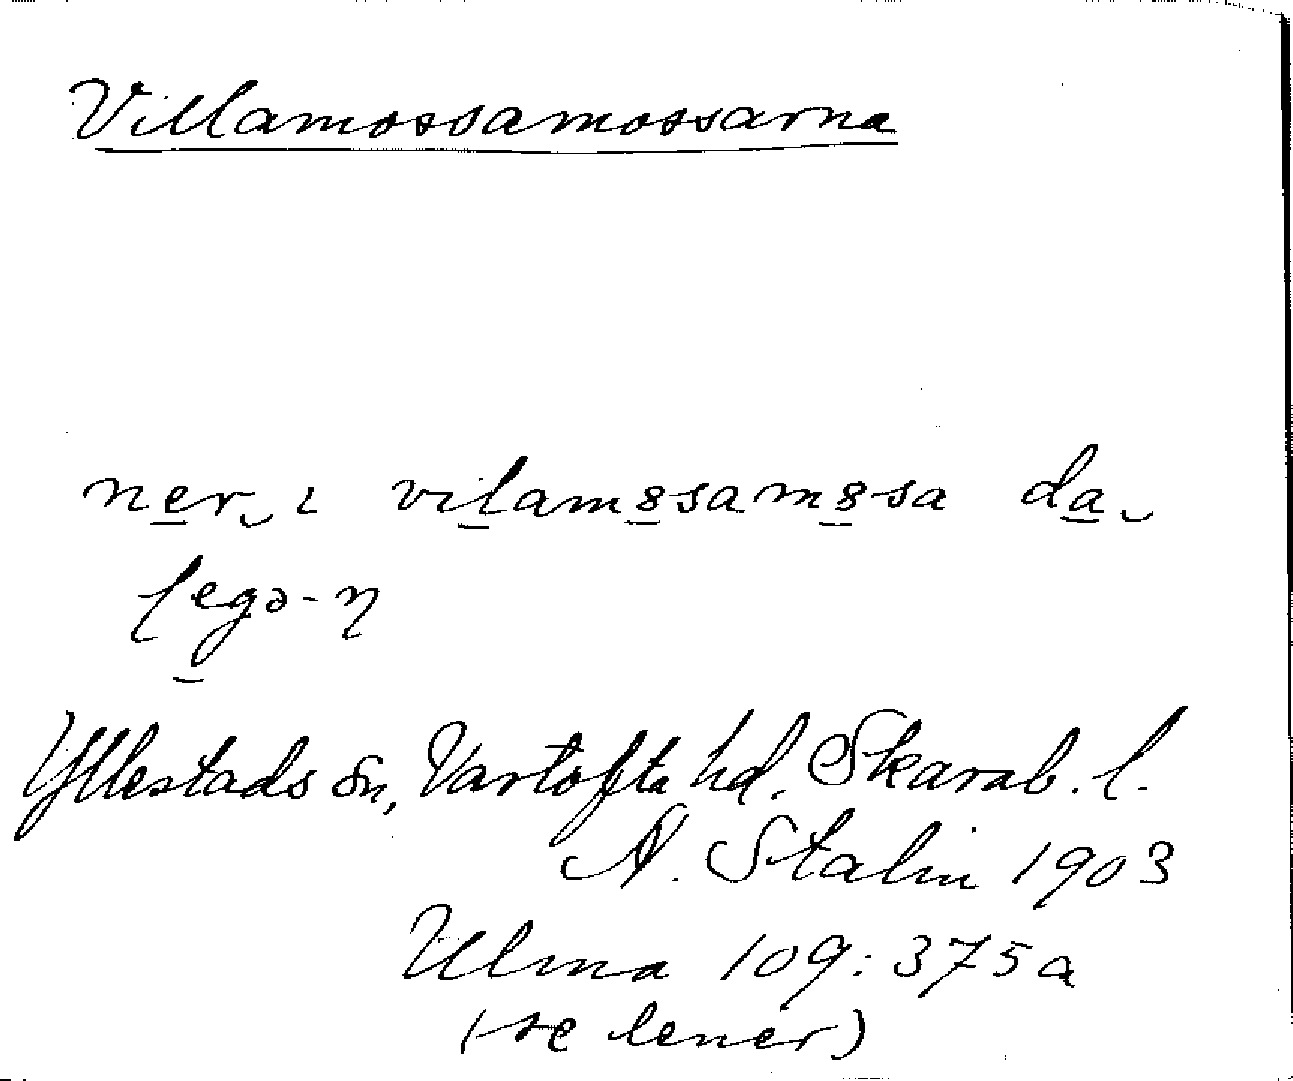 Villamossamossarna
ner ı vilamɞsamɞsa da
ſegə-ŋ
Yllestads sn, Vartofta hd. Skarab. l.
A. Stalin 1903
Ulma 109:375a
(se lener)